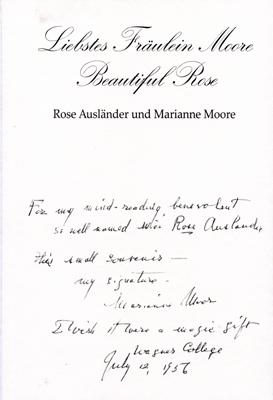 Liebstes Fräulein Moore
Beautiful Rose
Rose Ausländer und Marianne Moore
For my mind-reading, benevolent
so well named Miss Rose Auslander
this small souvenir —
my signature.
Marianne Moore
I wish it were a magic gift
Wagner College
July 12, 1956